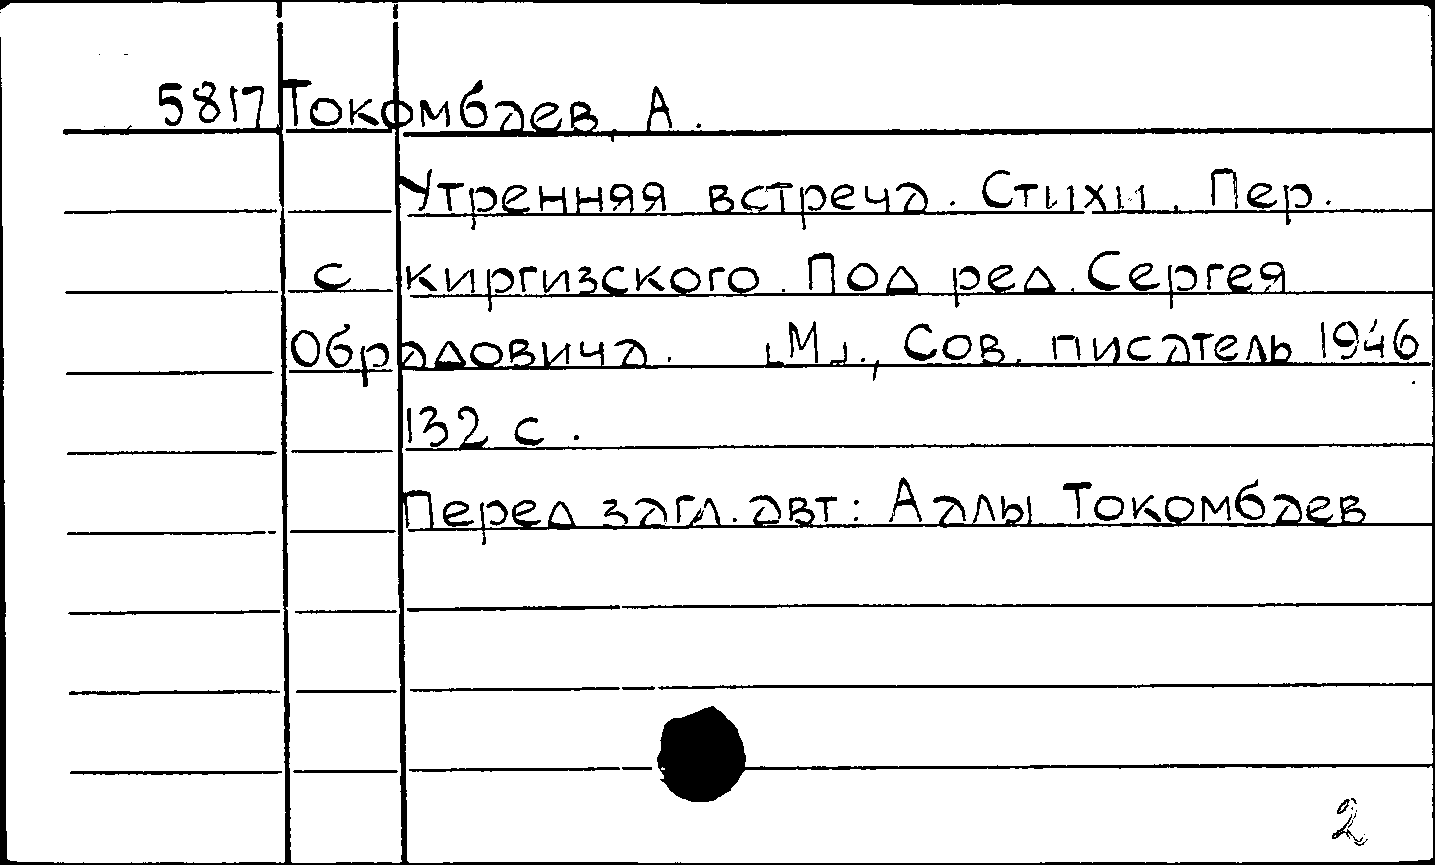 5817 Токомбаев, А.
Утренняя встреча. Стихи. Пер.
с киргизского. Под ред. Сергея
Обрадовича. [М.], Сов. писатель 1946
132 с.
Перед загл. авт: Аалы Токомбаев
2